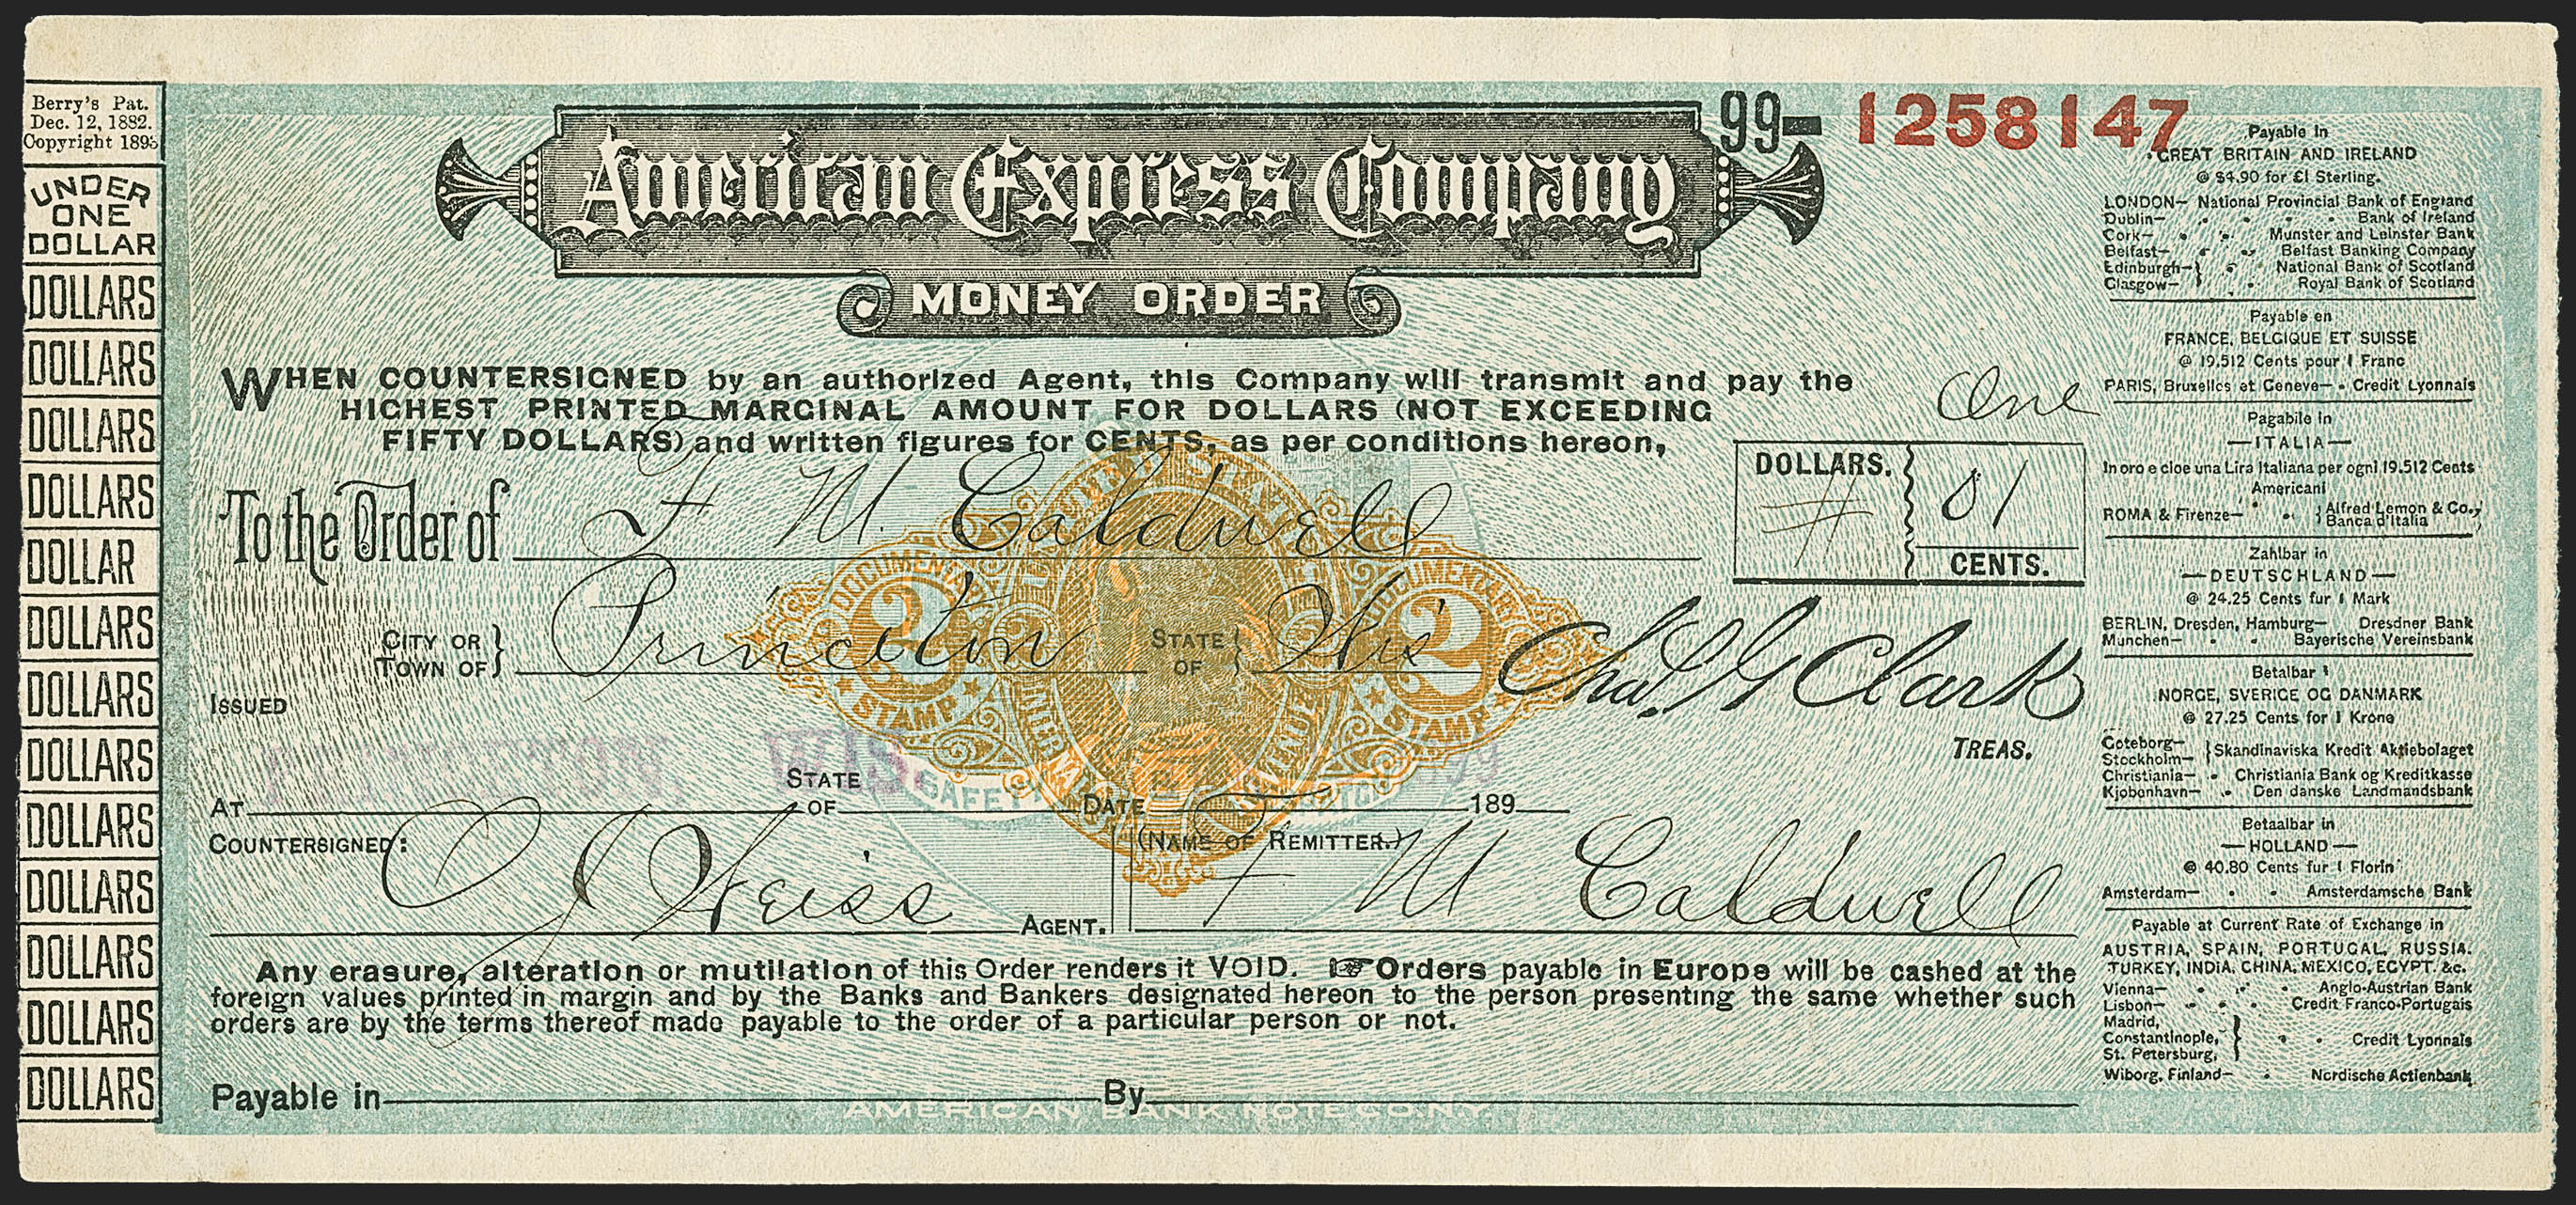 Berry's Pat.
Dec. 12, 1882.
Copyright 189
UNDER
ONE
DOLLAR
DOLLARS
DOLLARS
DOLLARS
DOLLARS
DOLLAR
DOLLARS
DOLLARS
DOLLARS
DOLLARS
DOLLARS
DOLLARS
DOLLARS
DOLLARS
American Express Company
MONEY ORDER
99- 1258147
WHEN COUNTERSIGNED by an authorized Agent, this Company will transmit and pay the
HIGHEST PRINTED MARGINAL AMOUNT FOR DOLLARS (NOT EXCEEDING
FIFTY DOLLARS) and written figures for CENTS, as per conditions hereon,
One
DOLLARS.
01
CENTS.
To the Order of F M. Caldwell
CITY OR TOWN OF } Princeton STATE OF } Wis
UNITED STATES
DOCUMENTARY DOCUMENTARY
2 2
STAMP STAMP
INTERNAL REVENUE
Chas. G Clark
TREAS.
ISSUED
PRINCETON, WIS.
AT STATE OF DATE 189
COUNTERSIGNED: C J Weiss AGENT.
(NAME OF REMITTER.) F M Caldwell
Any erasure, alteration or mutilation of this Order renders it VOID. ☞Orders payable in Europe will be cashed at the
foreign values printed in margin and by the Banks and Bankers designated hereon to the person presenting the same whether such
orders are by the terms thereof made payable to the order of a particular person or not.
Payable in By
AMERICAN BANK NOTE CO. N.Y.
Payable in
GREAT BRITAIN AND IRELAND
@ $4.90 for £1 Sterling.
LONDON— National Provincial Bank of England
Dublin— Bank of Ireland
Cork— Munster and Leinster Bank
Belfast— Belfast Banking Company
Edinburgh— } National Bank of Scotland
Glasgow— } Royal Bank of Scotland
Payable en
FRANCE, BELGIQUE ET SUISSE
@ 19.512 Cents pour 1 Franc
PARIS, Bruxelles et Geneve— Credit Lyonnais
Pagabile in
—ITALIA—
In oro e cioe una Lira Italiana per ogni 19.512 Cents
Americani
ROMA & Firenze— { Alfred Lemon & Co.,
Banca d'Italia
Zahlbar in
—DEUTSCHLAND—
@ 24.25 Cents fur 1 Mark
BERLIN, Dresden, Hamburg— Dresdner Bank
Munchen— Bayerische Vereinsbank
Betalbar i
NORGE, SVERIGE OG DANMARK
@ 27.25 Cents for 1 Krone
Goteborg—
Stockholm— } Skandinaviska Kredit Aktiebolaget
Christiania— Christiania Bank og Kreditkasse
Kjobenhavn— Den danske Landmandsbank
Betaalbar in
—HOLLAND—
@ 40.80 Cents fur 1 Florin
Amsterdam— Amsterdamsche Bank
Payable at Current Rate of Exchange in
AUSTRIA, SPAIN, PORTUGAL, RUSSIA.
TURKEY, INDIA, CHINA, MEXICO, EGYPT. &c.
Vienna— Anglo-Austrian Bank
Lisbon— Credit Franco-Portugais
Madrid,
Constantinople, } Credit Lyonnais
St. Petersburg,
Wiborg, Finland— Nordische Actienbank